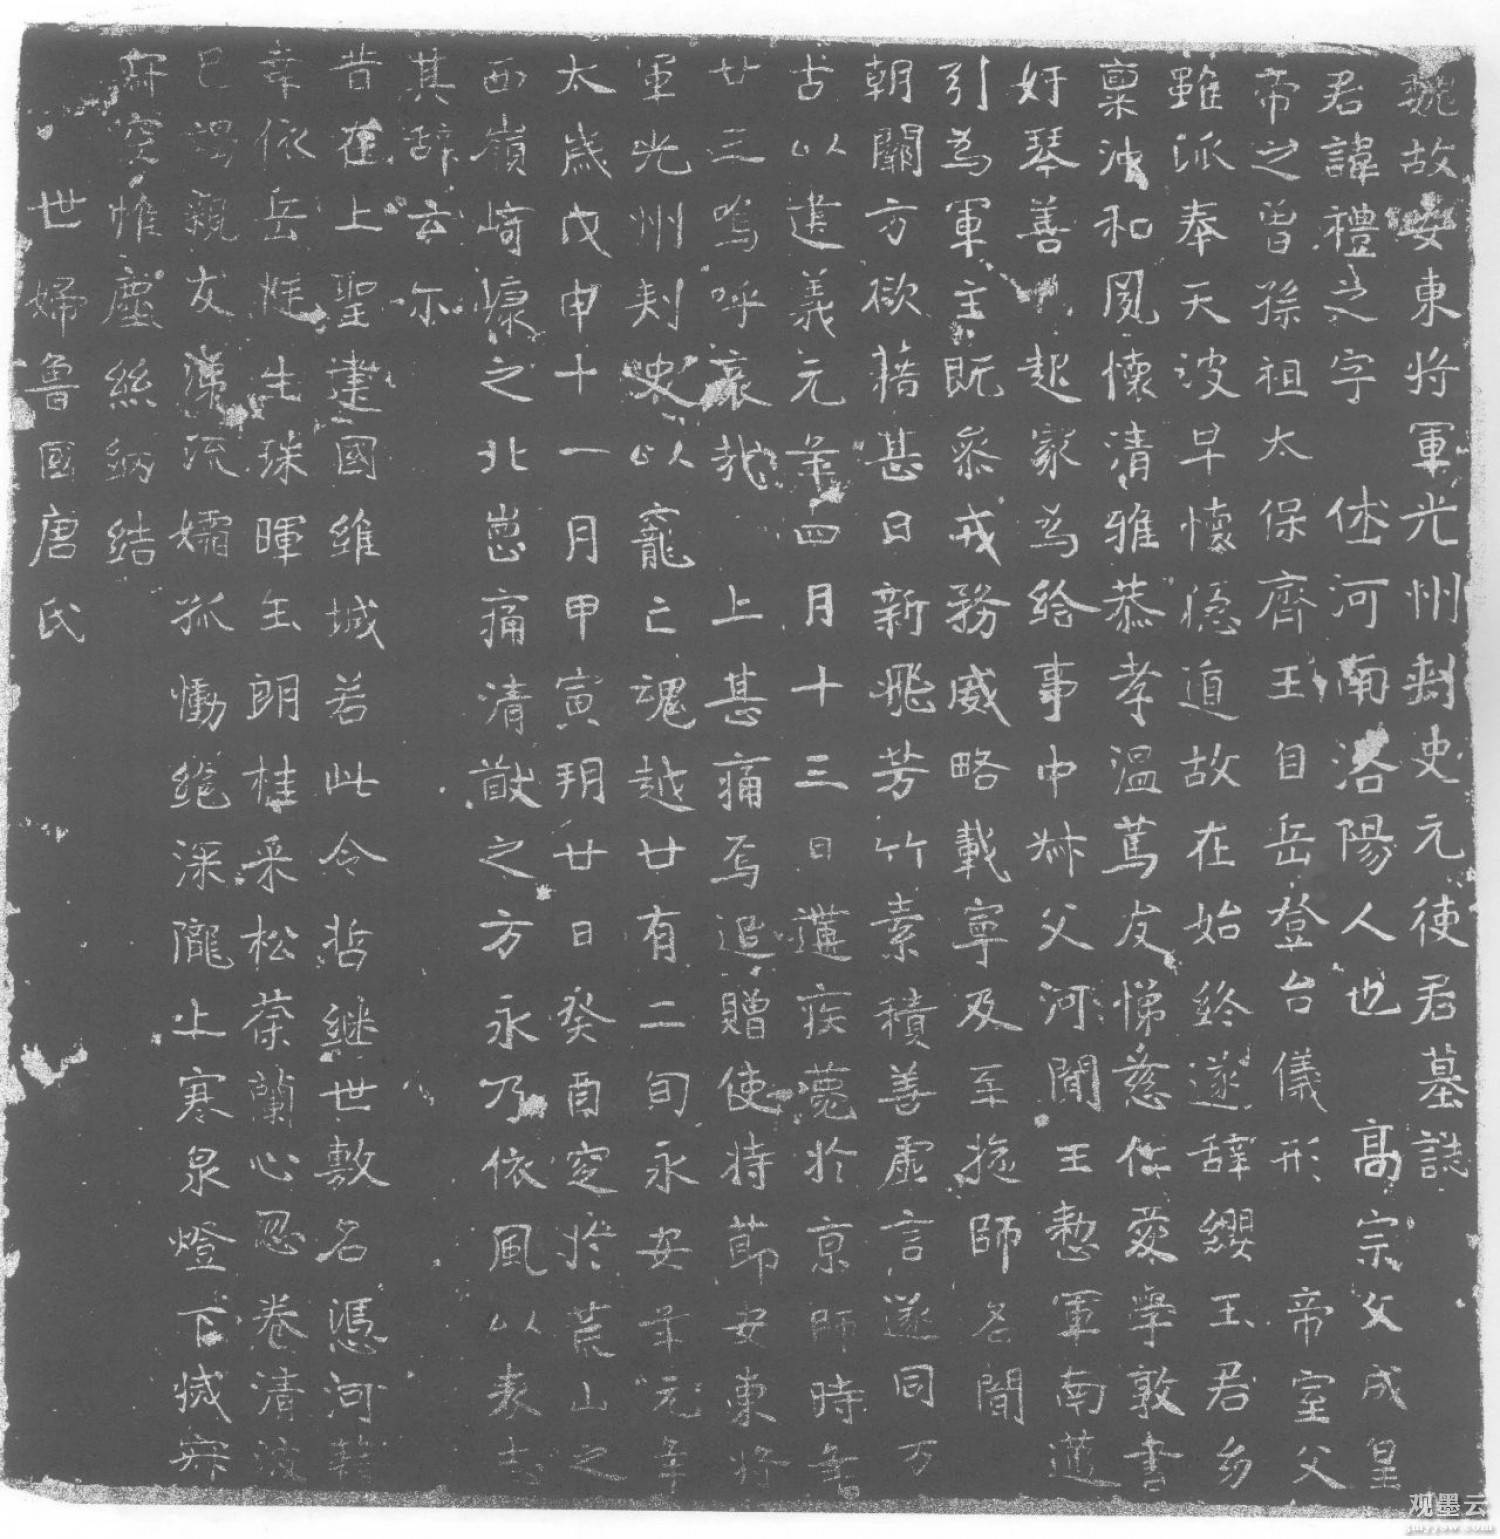 魏故安東將軍光州刺史元使君墓誌
君諱禮之字 伏河南洛陽人也 高宗文成皇
帝之曾孫祖太保齊王自岳登台儀形 帝室父
雖派奉天波早懷隱遁故在始終遂辞纓王君多
稟沖和夙懷清雅恭孝溫篤友悌慈仁愛學敦書
好琴善 起家為給事中叔父河間王懃軍南邁
引為軍主既叅戎務威略載寧及至旋師名聞
朝闕方欲藉甚日新飛芳竹素積善虛言遂同万
古以建義元年四月十三日遘疾薨於京師時年
廿三嗚呼哀哉 上甚痛焉追贈使持節安東將
軍光州刺史以寵亡魂越廿有二旬永安年元年
太歲戊申十一月甲寅朔廿日癸酉窆於荒山之
西嶺崎㠊之北崗痛清猷之方永乃依風以表志
其辞云尒
昔在上聖建國維城若此令哲継世敷名馮河籍
幸依岳 生珠暉玉朗桂采松葆蘭心忍卷清波
已竭親友涕流孀孤慟絶深隴上寒泉燈下滅寂
寂空惟塵絲網結
世婦魯國唐氏
观墨云